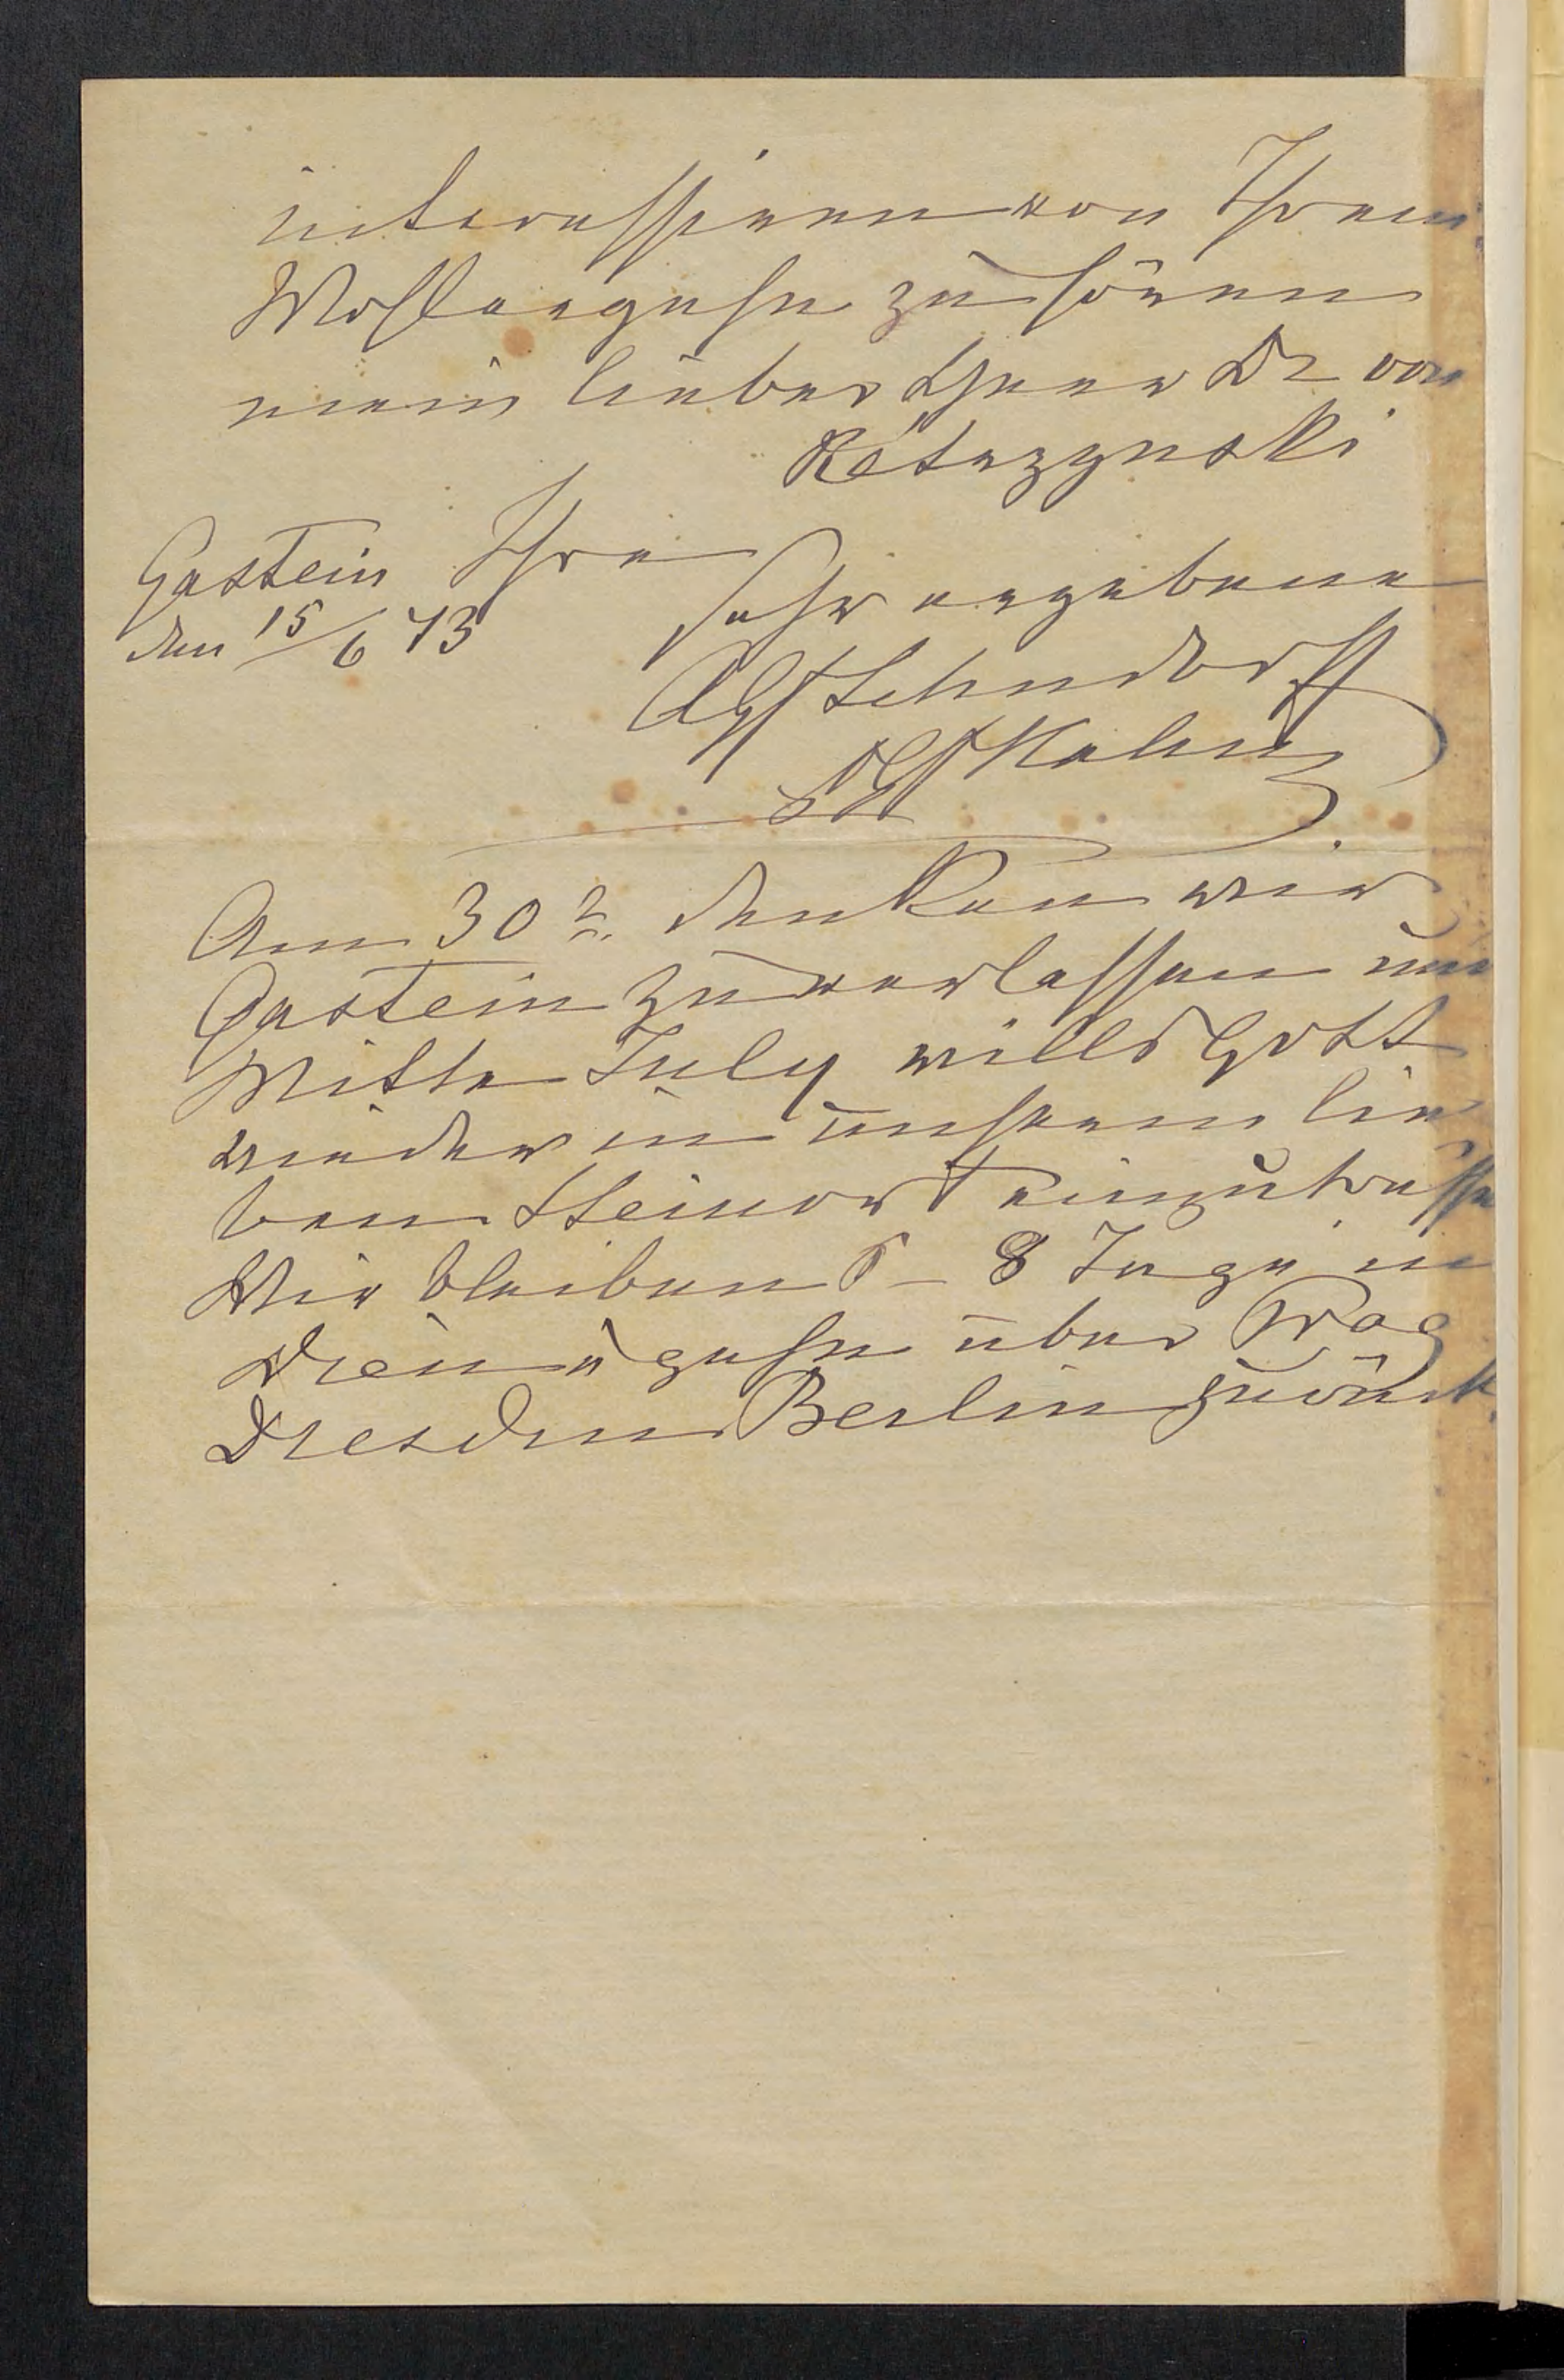 interessieren von Ihrem
Wohlergehn zu hören
mein lieber Herr Dr von
Kётrzynski
Ihre
Gastein
den 15/6 73
sehr ergebene
Gf Lehndorff
Gf Hahn
Am 30t. denken wir
Gastein zu verlassen um
Mitte July wills Gott
wieder in unserem lie
ben Steinort einzutreffen
Wir bleiben 6 - 8 Tage in
Wien u gehn über Prag
Dresden Berlin zurück.